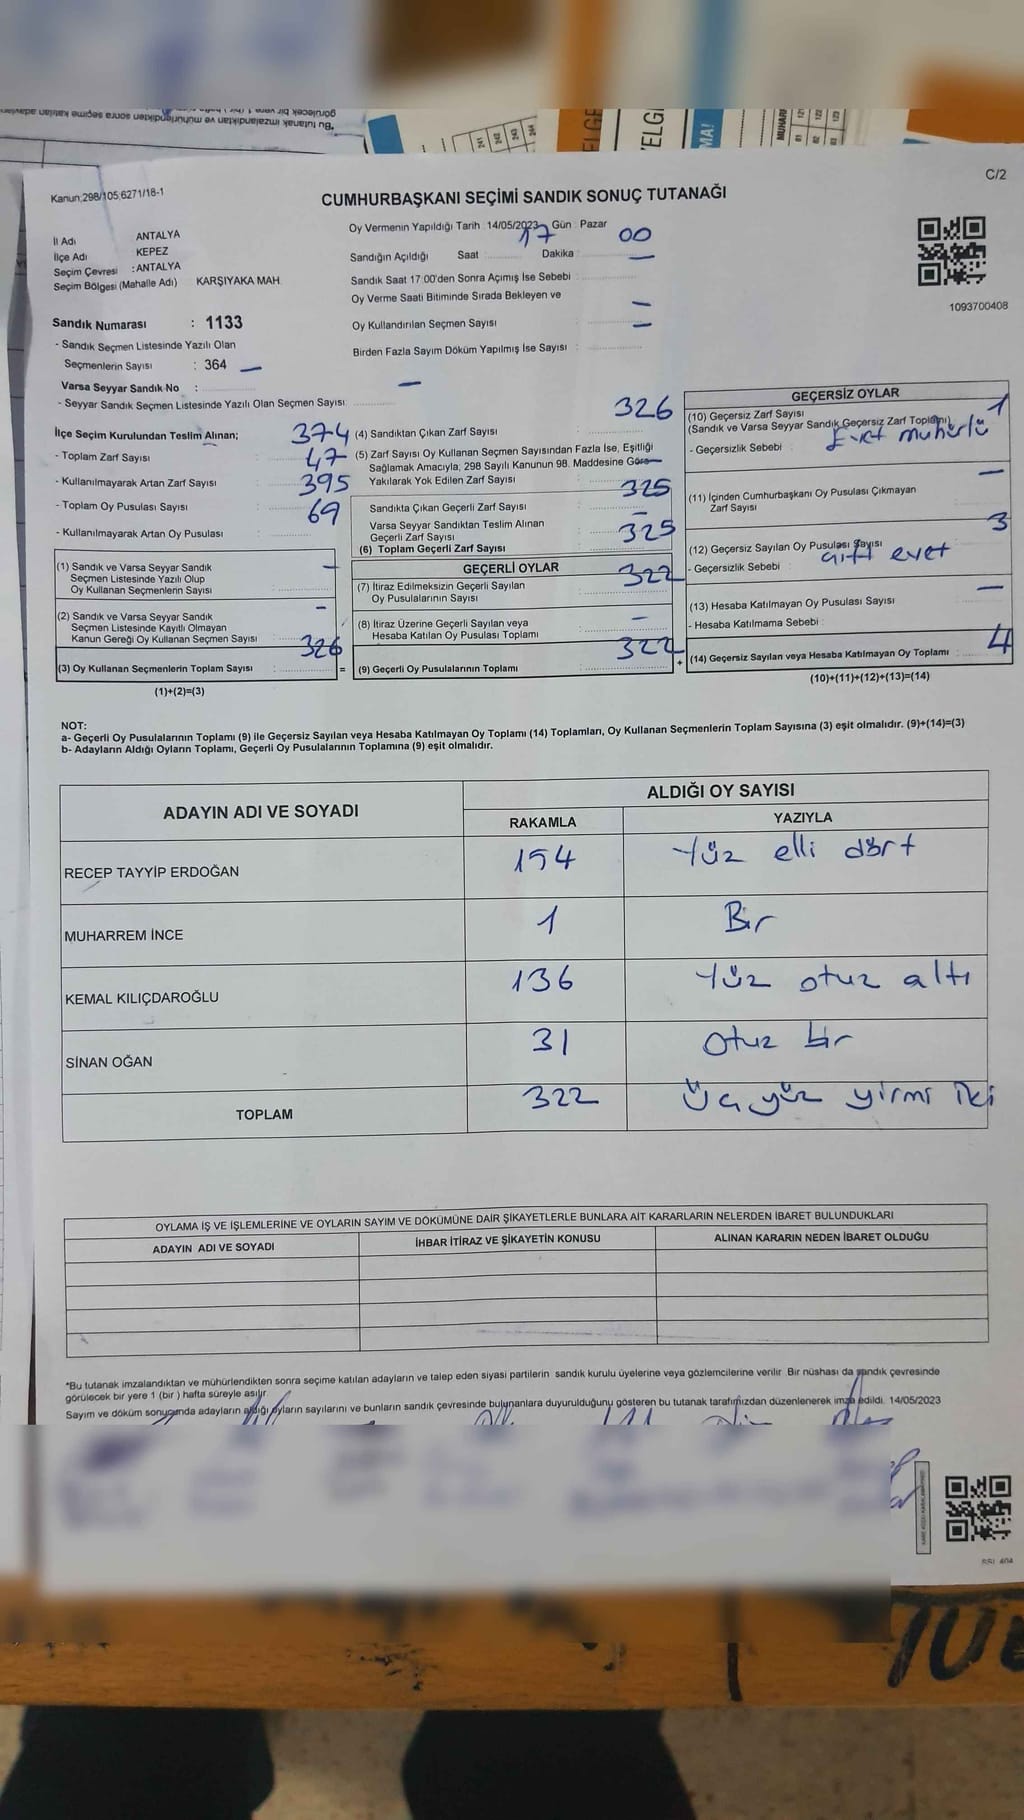 Kanun;298/105;6271/18-1
C/2
CUMHURBAŞKANI SEÇİMİ SANDIK SONUÇ TUTANAĞI
İl Adı ANTALYA
İlçe Adı KEPEZ
Seçim Çevresi : ANTALYA
Seçim Bölgesi (Mahalle Adı) KARŞIYAKA MAH.
Sandık Numarası : 1133
- Sandık Seçmen Listesinde Yazılı Olan
Seçmenlerin Sayısı : 364 —
Varsa Seyyar Sandık No :
- Seyyar Sandık Seçmen Listesinde Yazılı Olan Seçmen Sayısı: —
Oy Vermenin Yapıldığı Tarih : 14/05/2023 Gün : Pazar
Sandığın Açıldığı Saat : 17 Dakika : 00
Sandık Saat 17:00'den Sonra Açımış İse Sebebi : —
Oy Verme Saati Bitiminde Sırada Bekleyen ve
Oy Kullandırılan Seçmen Sayısı : —
Birden Fazla Sayım Döküm Yapılmış İse Sayısı : —
1093700408
İlçe Seçim Kurulundan Teslim Alınan;
- Toplam Zarf Sayısı : 374
- Kullanılmayarak Artan Zarf Sayısı : 47
- Toplam Oy Pusulası Sayısı : 395
- Kullanılmayarak Artan Oy Pusulası : 69
(1) Sandık ve Varsa Seyyar Sandık
Seçmen Listesinde Yazılı Olup
Oy Kullanan Seçmenlerin Sayısı : —
(2) Sandık ve Varsa Seyyar Sandık
Seçmen Listesinde Kayıtlı Olmayan
Kanun Gereği Oy Kullanan Seçmen Sayısı : —
(3) Oy Kullanan Seçmenlerin Toplam Sayısı : 326
(1)+(2)=(3)
=
(4) Sandıktan Çıkan Zarf Sayısı : 326
(5) Zarf Sayısı Oy Kullanan Seçmen Sayısından Fazla İse, Eşitliği
Sağlamak Amacıyla, 298 Sayılı Kanunun 98. Maddesine Göre
Yakılarak Yok Edilen Zarf Sayısı : —
Sandıkta Çıkan Geçerli Zarf Sayısı : 325
Varsa Seyyar Sandıktan Teslim Alınan
Geçerli Zarf Sayısı : —
(6) Toplam Geçerli Zarf Sayısı : 325
GEÇERLİ OYLAR
(7) İtiraz Edilmeksizin Geçerli Sayılan
Oy Pusulalarının Sayısı : 322
(8) İtiraz Üzerine Geçerli Sayılan veya
Hesaba Katılan Oy Pusulası Toplamı : —
(9) Geçerli Oy Pusulalarının Toplamı : 322
+
GEÇERSİZ OYLAR
(10) Geçersiz Zarf Sayısı 1
(Sandık ve Varsa Seyyar Sandık Geçersiz Zarf Toplamı)
- Geçersizlik Sebebi : Evet mühürlü
(11) İçinden Cumhurbaşkanı Oy Pusulası Çıkmayan
Zarf Sayısı —
(12) Geçersiz Sayılan Oy Pusulası Sayısı 3
- Geçersizlik Sebebi : çift evet
(13) Hesaba Katılmayan Oy Pusulası Sayısı —
- Hesaba Katılmama Sebebi :
(14) Geçersiz Sayılan veya Hesaba Katılmayan Oy Toplamı : 4
(10)+(11)+(12)+(13)=(14)
NOT:
a- Geçerli Oy Pusulalarının Toplamı (9) ile Geçersiz Sayılan veya Hesaba Katılmayan Oy Toplamı (14) Toplamları, Oy Kullanan Seçmenlerin Toplam Sayısına (3) eşit olmalıdır. (9)+(14)=(3)
b- Adayların Aldığı Oyların Toplamı, Geçerli Oy Pusulalarının Toplamına (9) eşit olmalıdır.
ADAYIN ADI VE SOYADI ALDIĞI OY SAYISI
RAKAMLA YAZIYLA
RECEP TAYYİP ERDOĞAN 154 Yüz elli dört
MUHARREM İNCE 1 Bir
KEMAL KILIÇDAROĞLU 136 Yüz otuz altı
SİNAN OĞAN 31 Otuz bir
TOPLAM 322 Üçyüz yirmi iki
OYLAMA İŞ VE İŞLEMLERİNE VE OYLARIN SAYIM VE DÖKÜMÜNE DAİR ŞİKAYETLERLE BUNLARA AİT KARARLARIN NELERDEN İBARET BULUNDUKLARI
ADAYIN ADI VE SOYADI İHBAR İTİRAZ VE ŞİKAYETİN KONUSU ALINAN KARARIN NEDEN İBARET OLDUĞU
*Bu tutanak imzalandıktan ve mühürlendikten sonra seçime katılan adayların ve talep eden siyasi partilerin sandık kurulu üyelerine veya gözlemcilerine verilir. Bir nüshası da sandık çevresinde
görülecek bir yere 1 (bir ) hafta süreyle asılır.
Sayım ve döküm sonucunda adayların aldığı oyların sayılarını ve bunların sandık çevresinde bulunanlara duyurulduğunu gösteren bu tutanak tarafımızdan düzenlenerek imza edildi. 14/05/2023